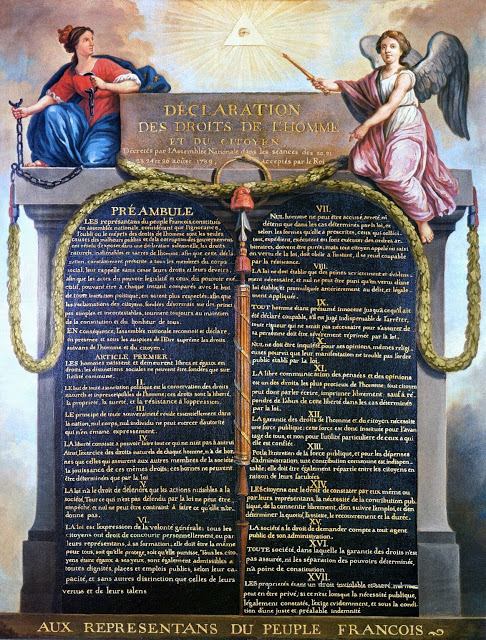 DÉCLARATION
DES DROITS DE L'HOMME
ET DU CITOYEN,
Décretés par l'Assemblée Nationale dans les séances des 20, 21
23, 24 et 26 août 1789, acceptés par le Roi
PRÉAMBULE
LES représentans du peuple François constitués
en assemblée nationale, considérant que l'ignorance,
l'oubli ou le mépris des droits de l'homme sont les seules
causes des malheurs publics et de la corruption des gouvernemens
ont résolu d'exposer dans une déclaration solemnelle, les droits
naturels, inaliénables et sacrés de l'homme: afin que cette décla-
ration, constamment présente a tous les membres du corps
social, leur rappelle sans cesse leurs droits et leurs devoirs;
afin que les actes du pouvoir législatif et ceux du pouvoir exé-
cutif, pouvant être à chaque instant comparés avec le but
de toute institution politique, en soient plus respectés; afin que
les réclamations des citoyens, fondées désormais sur des princi-
pes simples et incontestables, tournent toujours au maintien
de la constitution et du bonheur de tous.
EN conséquence, l'assemblée nationale reconnoit et déclare,
en présence et sous les auspices de l'Être suprême les droits
suivans de l'homme et du citoyen.
ARTICLE PREMIER.
LES hommes naissent et demeurent libres et égaux en
droits; les distinctions sociales ne peuvent être fondées que sur
l'utilité commune.
II.
LE but de toute association politique est la conservation des droits
naturels et imprescriptibles de l'homme; ces droits sont la liberté,
la propriété, la sureté, et la résistance à l'oppression.
III.
LE principe de toute souveraineté réside essentiellement dans
la nation, nul corps, nul individu ne peut exercer d'autorité
qui n'en émane expressement.
IV.
LA liberté consiste a pouvoir faire tout ce qui ne nuit pas à autrui
Ainsi, l'exercice des droits naturels de chaque homme, n'a de bor-
nes que celles qui assurent aux autres membres de la société
la jouissance de ces mêmes droits; ces bornes ne peuvent
être déterminées que par la loi
V.
LA loi n'a le droit de défendre que les actions nuisibles à la
société. Tout ce qui n'est pas défendu par la loi ne peut être
empêché, et nul ne peut être contraint à faire ce qu'elle n'or-
donne pas.
VI.
LA loi est l'expression de la volonté générale; tous les
citoyens ont droit de concourir personnellement, ou par
leurs représentans, à sa formation; elle doit être la même
pour tous, soit qu'elle protege, soit qu'elle punisse. Tous les cito-
yens étant égaux à ses yeux, sont également admissibles à
toutes dignités, places et emplois publics, selon leur ca-
pacité, et sans autres distinction que celles de leurs
vertus et de leurs talens
VII.
NUL homme ne peut être accusé, arreté, ni
détenu que dans les cas déterminés par la loi, et
selon les formes qu'elle a prescrites, ceux qui sollici-
tent, expédient, exécutent ou font exécuter des ordres ar-
bitraires, doivent être punis; mais tout citoyen appelé ou saisi
en vertu de la loi, doit obéir à l'instant, il se rend coupable
par la résistance.
VIII.
LA loi ne doit établir que des peines strictement et évidem-
ment nécessaires, et nul ne peut être puni qu'en vertu d'une
loi établie et promulguée antérieurement au délit, et légale-
ment appliquée.
IX.
TOUT homme étant présumé innocent jusqu'à ce qu'il ait
été déclaré coupable, s'il est jugé indispensable de l'arrêter,
toute rigueur qui ne serait pas nécessaire pour s'assurer de
sa personne doit être sévèrement réprimée par la loi.
X.
NUL ne doit être inquiété pour ses opinions, mêmes religi-
euses pourvu que leur manifestation ne trouble pas l'ordre
public établi par la loi.
XI.
LA libre communication des pensées et des opinions
est un des droits les plus precieux de l'homme; tout citoyen
peut dont parler écrire, imprimer librement: sauf à ré-
pondre de l'abus de cette liberté dans les cas déterminés
par la loi.
XII.
LA garantie des droits de l'homme et du citoyen nécessite
une force publique; cette force est donc instituée pour l'avan-
tage de tous, et non pour l'utilité particuliere de ceux a qui
elle est confiée.
XIII.
POUR l'entretien de la force publique, et pour les dépenses
d'administration, une contribution commune est indispen-
sable; elle doit être également répartie entre les citoyens en
raison de leurs facultées
XIV.
LES citoyens ont le droit de constater par eux même ou
par leurs représentans, la nécessité de la contribution pub-
lique, de la consentir librement, d'en suivre l'emploi, et d'en
déterminer la quotité, l'assiette, le recouvrement et la durée.
XV.
LA société a le droit de demander compte a tout agent
public de son administration.
XVI.
TOUTE société, dans laquelle la garantie des droits n'est
pas assurée, ni la séparation des pouvoirs déterminée,
n'a point de constitution
XVII.
LES propriétés étant un droit inviolable et sacré, nul ne
peut en être privé, si ce n'est lorsque la nécessité publique,
légalement constatée, l'exige evidemment, et sous la condi-
tion d'une juste et préalable indemnité.
AUX REPRESENTANS DU PEUPLE FRANCOIS